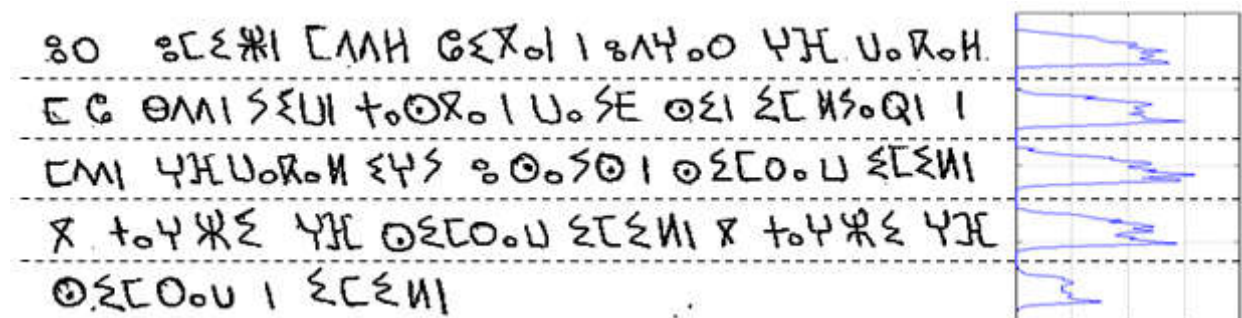 ⵓⵔ ⵓⵎⵉⵣⵏ ⵎⴷⴷⵍ ⵛⵉⴳⴰⵏ ⵏ ⵓⴷⵖⴰⵔ ⵖⴼ ⵡⴰⴽⴰⵍ
ⵎ ⵛ ⴱⴷⴷⵏ ⵢⵉⵡⵏ ⵜⴰⵙⴳⴰ ⵏ ⵡⴰⵢⴹ ⵙⵉⵏ ⵉⵎ ⵍⵢⴰⵕⵏ ⵏ
ⵎⴷⴷⵏ ⵖⴼ ⵡⴰⴽⴰⵍ ⵉⵖⵢ ⵓⵙⴰⵢⵙ ⵏ ⵙⵉⵎⵔⴰⵡ ⵉⵎⵉⵍⵏ
ⴳ ⵜⴰⵖⵣⵉ ⵖⴼ ⵙⵉⵎⵔⴰⵡ ⵉⵎⵉⵍⵏ ⴳ ⵜⴰⵖⵣⵉ ⵖⴼ
ⵙⵉⵎⵔⴰⵡ ⵏ ⵉⵎⵉⵍⵏ